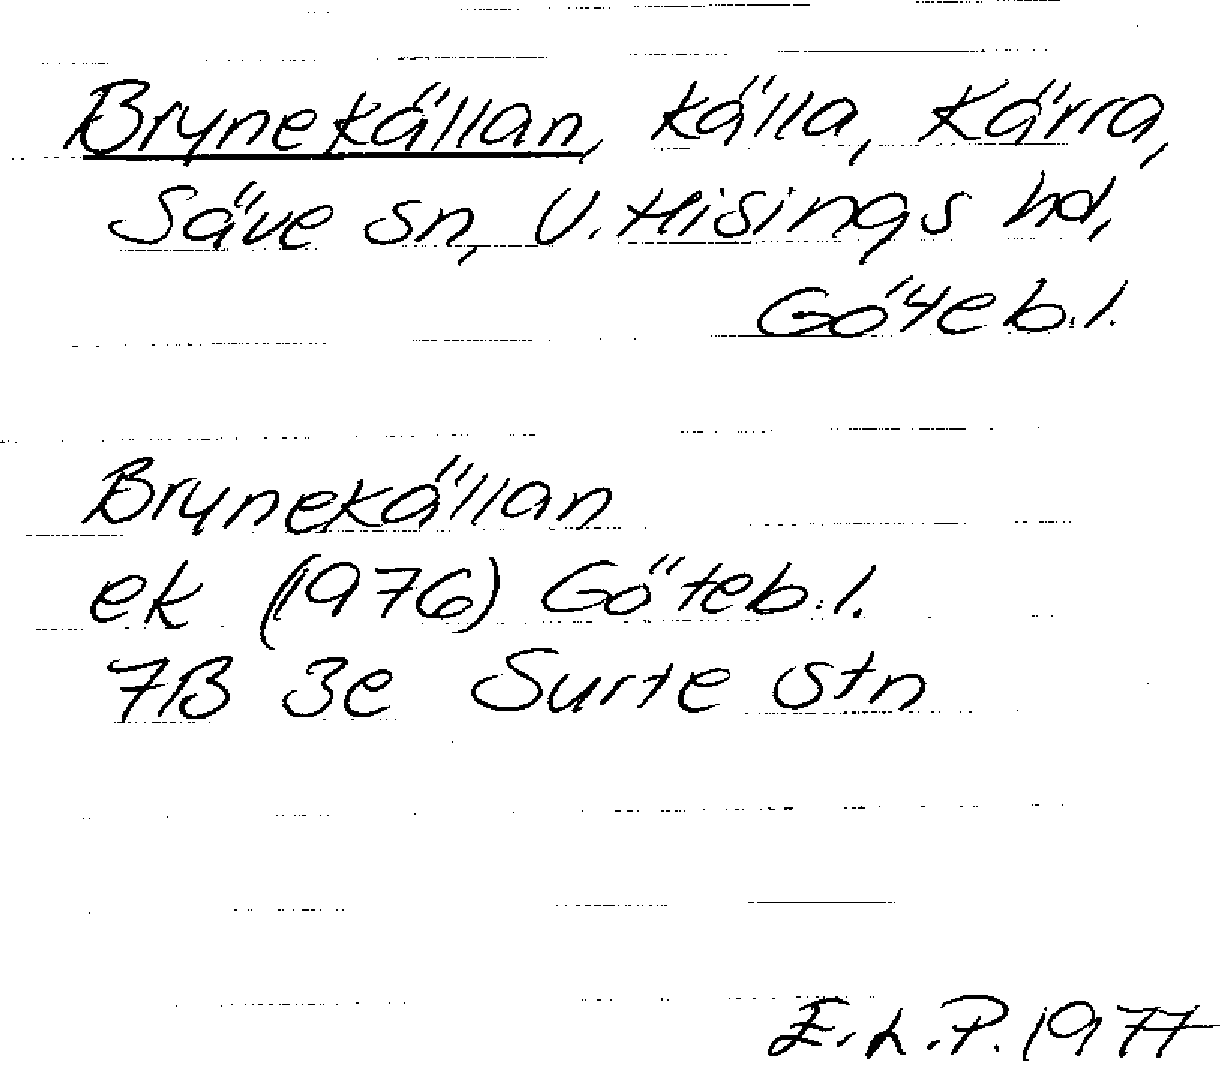 Brynekällan, källa, Kärra,
Säve sn, V. Hisings hd,
Göteb.l.
Brynekällan
ek (1976) Göteb.l.
7B 3e Surte stn
E.L.P. 1977